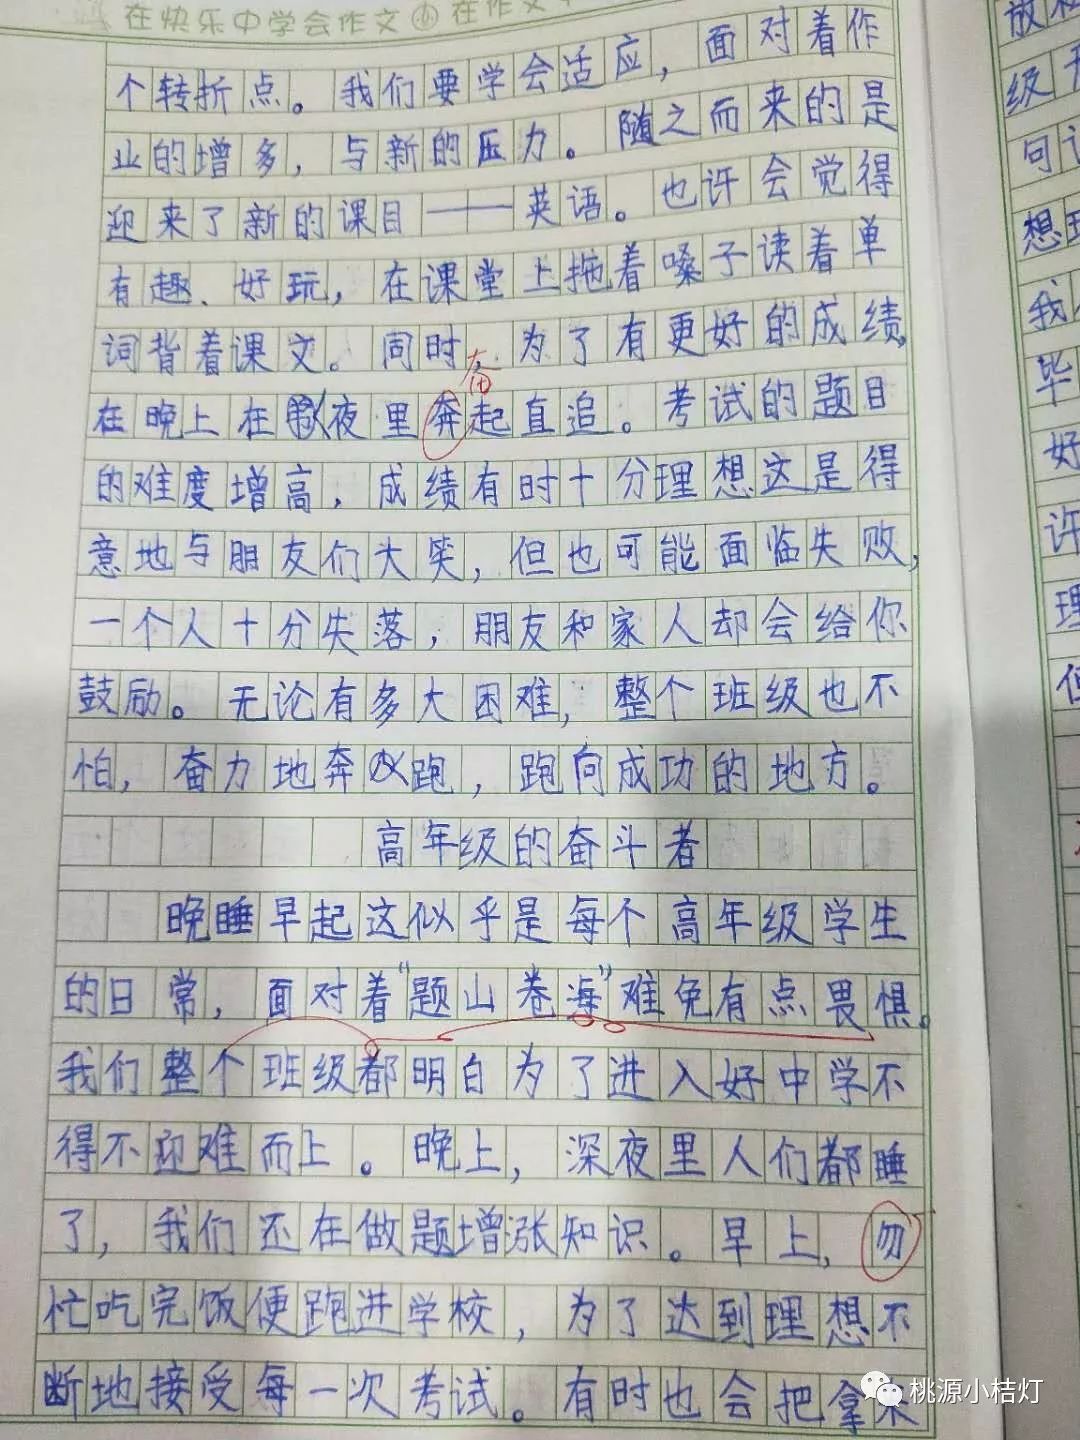 在快乐中学会作文 小 在作文
个转折点。我们要学会适应，面对着作
业的增多，与新的压力。随之而来的是
迎来了新的课目——英语。也许会觉得
有趣、好玩，在课堂上拖着嗓子读着单
词背着课文。同时，为了有更好的成绩，
奋
在晚上在夜里奔起直追。考试的题目
的难度增高，成绩有时十分理想这是得
意地与朋友们大笑，但也可能面临失败，
一个人十分失落，朋友和家人却会给你
鼓励。无论有多大困难，整个班级也不
怕，奋力地奔跑，跑向成功的地方。
高年级的奋斗者
晚睡早起这似乎是每个高年级学生
的日常，面对着“题山卷海”难免有点畏惧。
我们整个班级都明白为了进入好中学不
得不迎难而上。晚上，深夜里人们都睡
了，我们还在做题增涨知识。早上，勿
忙吃完饭便跑进学校，为了达到理想不
断地接受每一次考试。有时也会把拿不
级
句
想理
我
毕
好
许
理
桃源小桔灯